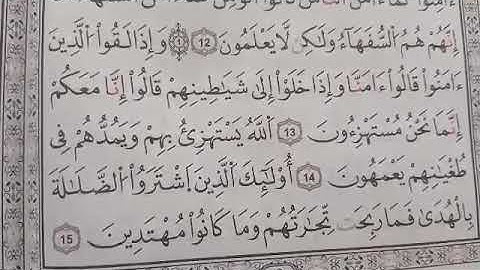 إِنَّهُمْ هُمُ اُ۬لسُّفَهَآءُ وَلَٰكِن لَّا يَعْلَمُونَ 12 وَإِذَا لَقُواْ اُ۬لَّذِينَ
ءَامَنُواْ قَالُوٓاْ ءَامَنَّا وَإِذَا خَلَوْاْ إِلَىٰ شَيَٰطِينِهِمْ قَالُوٓاْ إِنَّا مَعَكُمْ
إِنَّمَا نَحْنُ مُسْتَهْزِءُونَ 13 اَ۬للَّهُ يَسْتَهْزِئُ بِهِمْ وَيَمُدُّهُمْ فِے
طُغْيَٰنِهِمْ يَعْمَهُونَ 14 أُوْلَٰٓئِكَ اَ۬لذِينَ اَ۪شْتَرَوُاْ اُ۬لضَّلَٰلَةَ
بِالْهُدَىٰ فَمَا رَبِحَت تِّجَٰرَتُهُمْ وَمَا كَانُواْ مُهْتَدِينَ 15